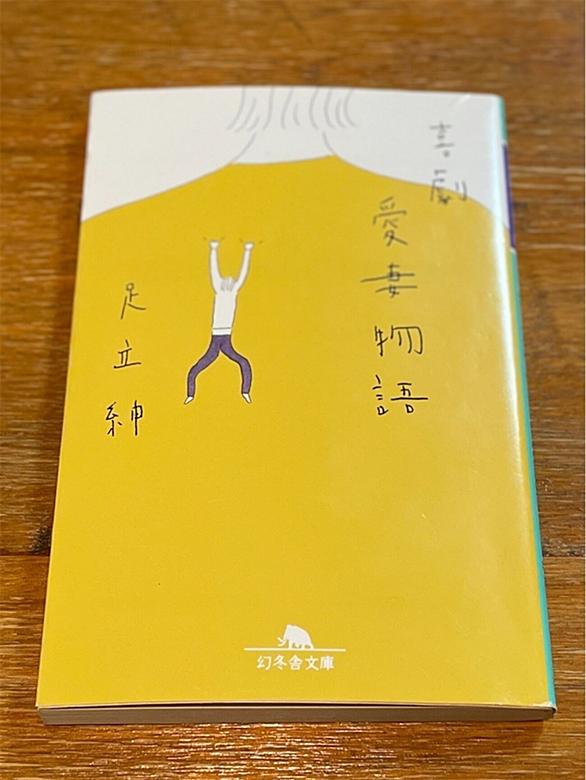 喜劇
愛妻物語
足立紳
幻冬舎文庫